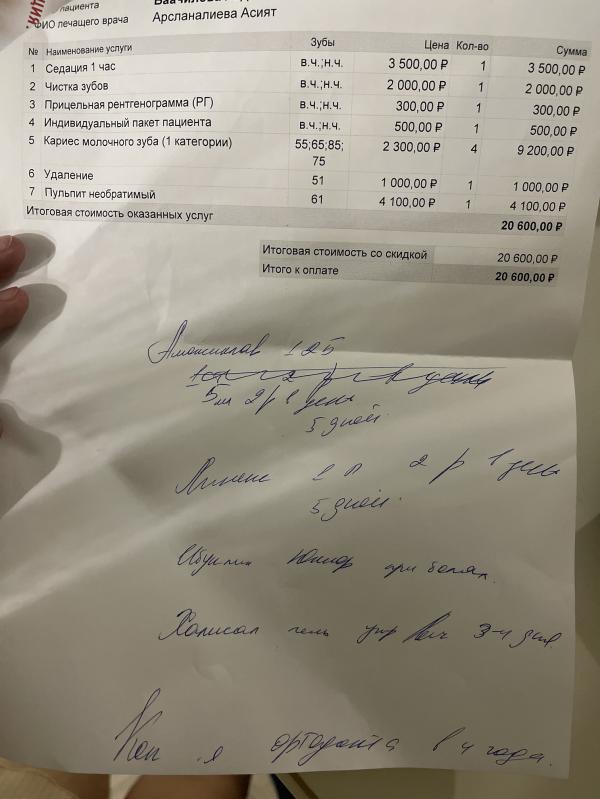 пациента
ФИО лечащего врача Арсланалиева Асият
№ Наименование услуги Зубы Цена Кол-во Сумма
1 Седация 1 час в.ч.;н.ч. 3 500,00 ₽ 1 3 500,00 ₽
2 Чистка зубов в.ч.;н.ч. 2 000,00 ₽ 1 2 000,00 ₽
3 Прицельная рентгенограмма (РГ) в.ч.;н.ч. 300,00 ₽ 1 300,00 ₽
4 Индивидуальный пакет пациента в.ч.;н.ч. 500,00 ₽ 1 500,00 ₽
5 Кариес молочного зуба (1 категории) 55;65;85; 2 300,00 ₽ 4 9 200,00 ₽
75
6 Удаление 51 1 000,00 ₽ 1 1 000,00 ₽
7 Пульпит необратимый 61 4 100,00 ₽ 1 4 100,00 ₽
Итоговая стоимость оказанных услуг 20 600,00 ₽
Итоговая стоимость со скидкой 20 600,00 ₽
Итого к оплате 20 600,00 ₽
Амоксиклав 125
5мл 2 р в день
5 дней.
2 р
5 дней.
при болях.
гель 3-4 дня.
Кон я ортодонта в 4 года.